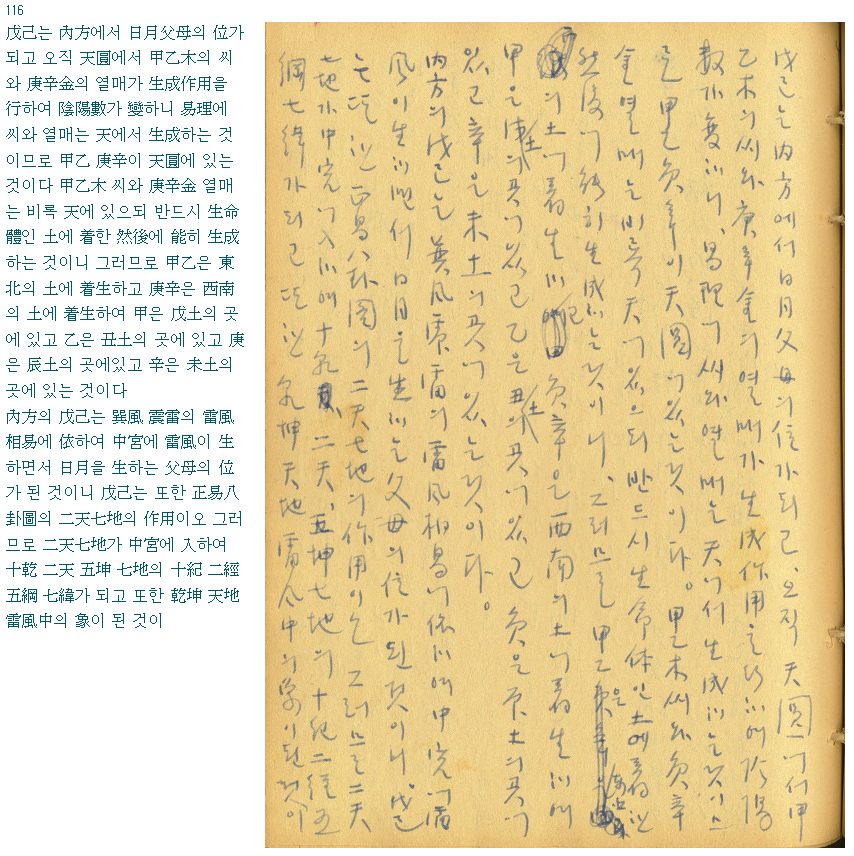 116
戊己는 內方에서 日月父母의 位가
되고 오직 天圓에서 甲乙木의 씨
와 庚辛金의 열매가 生成作用을
行하여 陰陽數가 變하니 易理에
씨와 열매는 天에서 生成하는 것
이므로 甲乙 庚辛이 天圓에 있는
것이다 甲乙木 씨와 庚辛金 열매
는 비록 天에 있으되 반드시 生命
體인 土에 着한 然後에 能히 生成
하는 것이니 그러므로 甲乙은 東
北의 土에 着生하고 庚辛은 西南
의 土에 着生하여 甲은 戊土의 곳
에 있고 乙은 丑土의 곳에 있고 庚
은 辰土의 곳에있고 辛은 未土의
곳에 있는 것이다
內方의 戊己는 巽風 震雷의 雷風
相易에 依하여 中宮에 雷風이 生
하면서 日月을 生하는 父母의 位
가 된 것이니 戊己는 또한 正易八
卦圖의 二天七地의 作用이오 그러
므로 二天七地가 中宮에 入하여
十乾 二天 五坤 七地의 十紀 二經
五綱 七緯가 되고 또한 乾坤 天地
雷風中의 象이 된 것이
戊己는 內方에서 日月父母의 位가 되고, 오직 天圓에서 甲
乙木의 씨와 庚辛金의 열매가 生成作用을 行하여 陰陽
數가 變하니, 易理에 씨와 열매는 天에서 生成하는 것이므
로 甲乙 庚辛이 天圓에 있는 것이다. 甲乙木 씨와 庚辛
金 열매는 비록 天에 있으되 반드시 生命体인 土에 着한
然後에 能히 生成하는 것이니, 그러므로 甲乙은 東北
의 土에 着生하고 庚辛은 西南의 土에 着生하여
甲은 戊土의 곳에 있고 乙은 丑土의 곳에 있고 庚은 辰土의 곳에
있고 辛은 未土의 곳에 있는 것이다.
內方의 戊己는 巽風 震雷의 雷風相易에 依하여 中宮에 雷
風이 生하면서 日月을 生하는 父母의 位가 된 것이니 戊己
는 또한 正易八卦圖의 二天七地의 作用이오 그러므로 二天
七地가 中宮에 入하여 十乾 二天, 五坤 七地의 十紀 二經 五
綱 七緯가 되고 또한 乾坤 天地 雷風中의 象이 된 것이